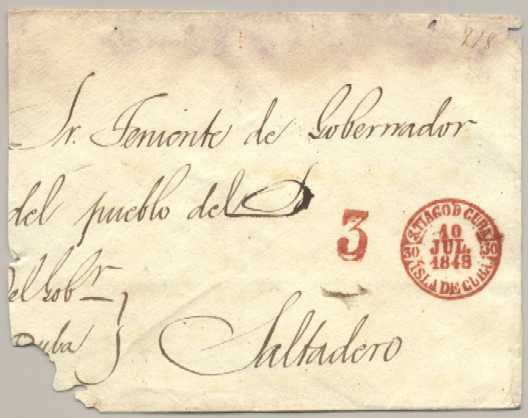 218
Sr. Teniente de Gobernador
del pueblo del
3
STIAGO D CUBA
10
JUL
1848
30 30
ISLA DE CUBA
Del Gobr
Cuba
Saltadero